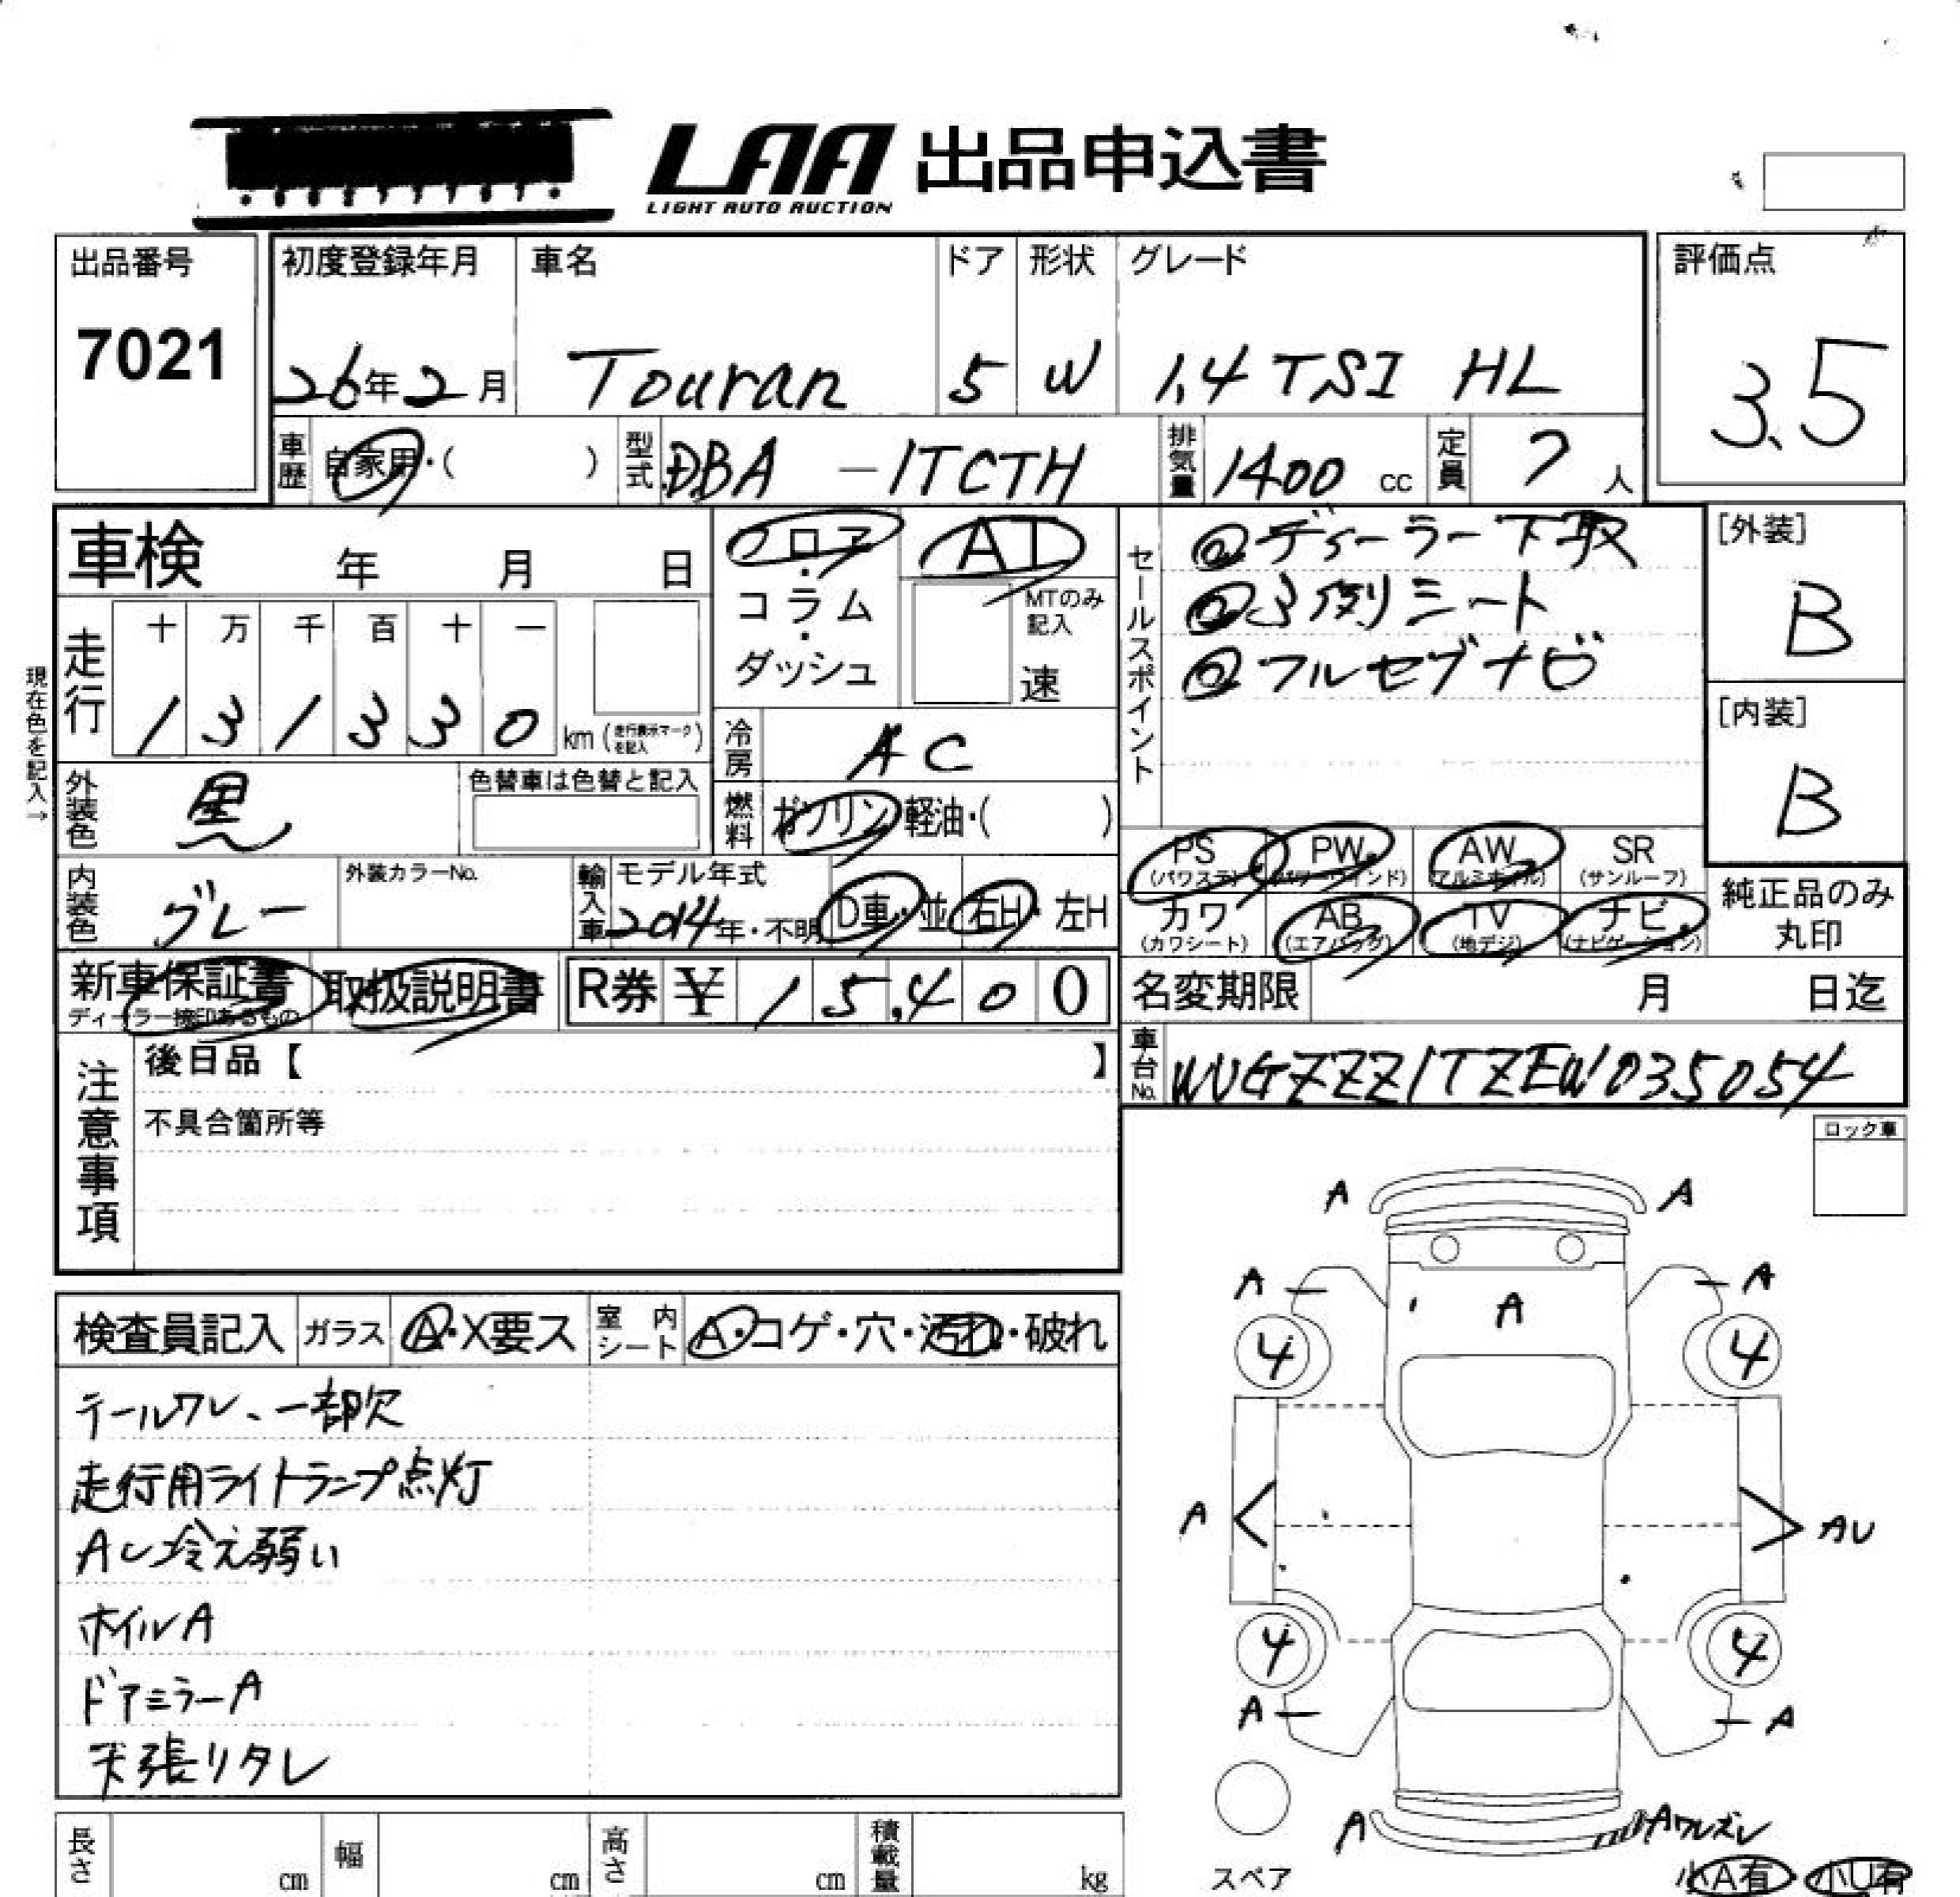 LAA 出品申込書
LIGHT AUTO AUCTION
出品番号
7021
初度登録年月
26年2月
車名
Touran
ドア
5
形状
W
グレード
1.4 TSI HL
評価点
3.5
車歴
自家用・( )
型式
DBA -1TCTH
排気量
1400 cc
定員
7人
車検 年 月 日
フロア・コラム・ダッシュ
AT
MTのみ記入
速
セールスポイント
@ディーラー下取
@3列シート
@フルセグナビ
[外装]
B
[内装]
B
現在色を記入→
走行
十 万 千 百 十 一
1 3 1 3 3 0 km (走行表示マークを記入)
冷房
AC
外装色
黒
色替車は色替と記入
燃料
ガソリン・軽油・( )
PS (パワステ)
PW (パワーウインド)
AW (アルミホイル)
SR (サンルーフ)
カワ (カワシート)
AB (エアバッグ)
TV (地デジ)
ナビ (ナビゲーション)
純正品のみ丸印
内装色
グレー
外装カラーNo.
輸入車
モデル年式
2014年・不明
D車・並
右H・左H
新車保証書
ディーラー捺印あるもの
取扱説明書
R券 ¥ 15,400
名変期限 月 日迄
車台No.
WVGZZZ1TZEW035054
注意事項
後日品【 】
不具合箇所等
ロック車
検査員記入
ガラス
A・X要ス
室内シート
A・コゲ・穴・汚れ・破れ
テールワレ、一部欠
走行用ライトランプ点灯
AC冷え弱い
ホイルA
ドアミラーA
天張りタレ
A A
A A A
4 4
A AU
4 4
A A
A Aワレズレ
スペア
小A有 小U有
長さ cm
幅 cm
高さ cm
積載量 kg